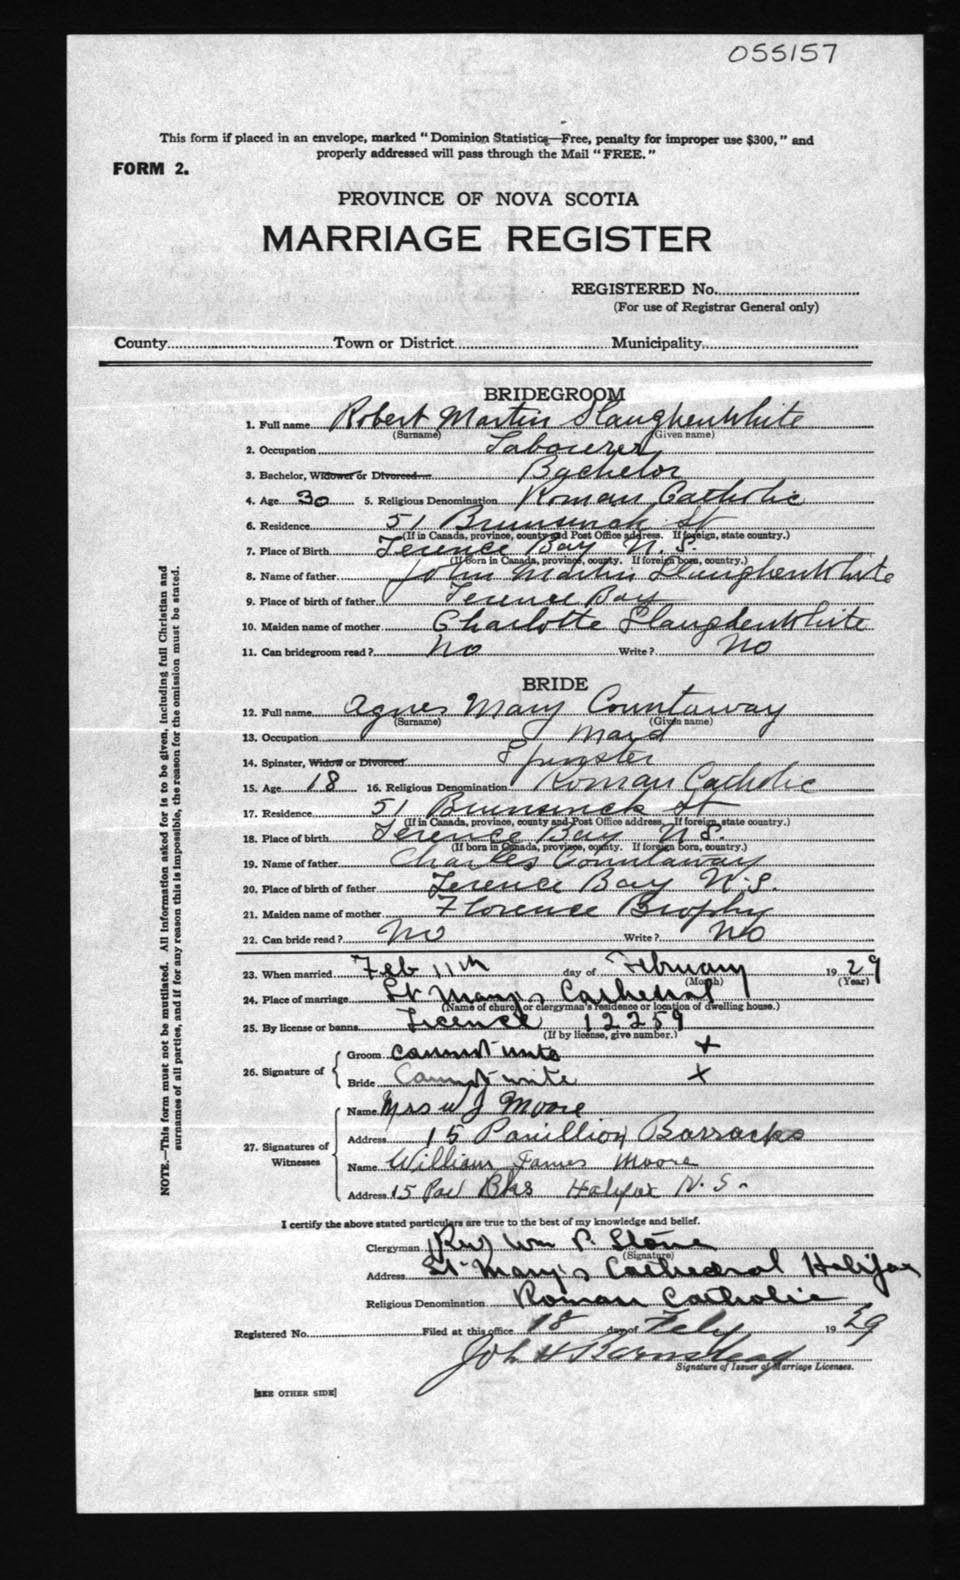 055157
This form if placed in an envelope, marked "Dominion Statistics—Free, penalty for improper use $300," and
properly addressed will pass through the Mail "FREE."
FORM 2.
PROVINCE OF NOVA SCOTIA
MARRIAGE REGISTER
REGISTERED No.
(For use of Registrar General only)
County Town or District Municipality
BRIDEGROOM
1. Full name Robert Martin SlaughenWhite
(Surname) (Given name)
2. Occupation Labourer
3. Bachelor, Widower or Divorced Bachelor
4. Age 30 5. Religious Denomination Roman Catholic
6. Residence 51 Brunswick St
(If in Canada, province, county and Post Office address. If foreign, state country.)
7. Place of Birth Terence Bay N.S.
(If born in Canada, province, county. If foreign born, country.)
8. Name of father John Martin SlaughenWhite
9. Place of birth of father Terence Bay
10. Maiden name of mother Charlotte SlaughenWhite
11. Can bridegroom read? No Write? No
BRIDE
12. Full name Agnes Mary Countaway
(Surname) (Given name)
13. Occupation Maid
14. Spinster, Widow or Divorced Spinster
15. Age 18 16. Religious Denomination Roman Catholic
17. Residence 51 Brunswick St
(If in Canada, province, county and Post Office address. If foreign, state country.)
18. Place of birth Terence Bay N.S.
(If born in Canada, province, county. If foreign born, country.)
19. Name of father Charles Countaway
20. Place of birth of father Terence Bay N.S.
21. Maiden name of mother Florence Brophy
22. Can bride read? No Write? No
23. When married Feb 11th day of February 1929
(Month) (Year)
24. Place of marriage St Mary's Cathedral
(Name of church or clergyman's residence or location of dwelling house.)
25. By license or banns Licence 12259
(If by license, give number.)
26. Signature of
Groom cannot write X
Bride Cannot write X
27. Signatures of Witnesses
Name Mrs W J Moore
Address 15 Pavillion Barracks
Name William James Moore
Address 15 Pav Bks Halifax N.S.
I certify the above stated particulars are true to the best of my knowledge and belief.
Clergyman (Rev) Wm P. Stone
(Signature)
Address St Mary's Cathedral Halifax
Religious Denomination Roman Catholic
Registered No. Filed at this office 18 day of Feby 1929
John H Barnstead
Signature of Issuer of Marriage Licenses.
[SEE OTHER SIDE]
NOTE.—This form must not be mutilated. All information asked for is to be given, including full Christian and
surnames of all parties, and if for any reason this is impossible, the reason for the omission must be stated.